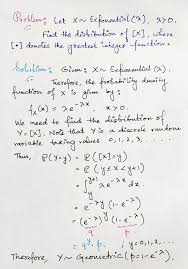 Problem: Let X ~ Exponential (λ), λ>0.
Find the distribution of [X], where
[•] denotes the greatest integer function.
Solution: Given: X ~ Exponential (λ).
Therefore, the probability density
function of X is given by:
f_X(x) = λ e^{-λx}, x>0.
We need to find the distribution of
Y = [X]. Note that Y is a discrete random
variable taking values 0, 1, 2, 3, ...
Thus, P(Y=y) = P([X]=y)
= P(y ≤ X < y+1)
= ∫_y^{y+1} λ e^{-λx} dx
= e^{-λy} (1-e^{-λ})
= (e^{-λ})^y (1-e^{-λ})
q p
= q^y p, y = 0, 1, 2, ...
Therefore, Y ~ Geometric (p = 1-e^{-λ}).